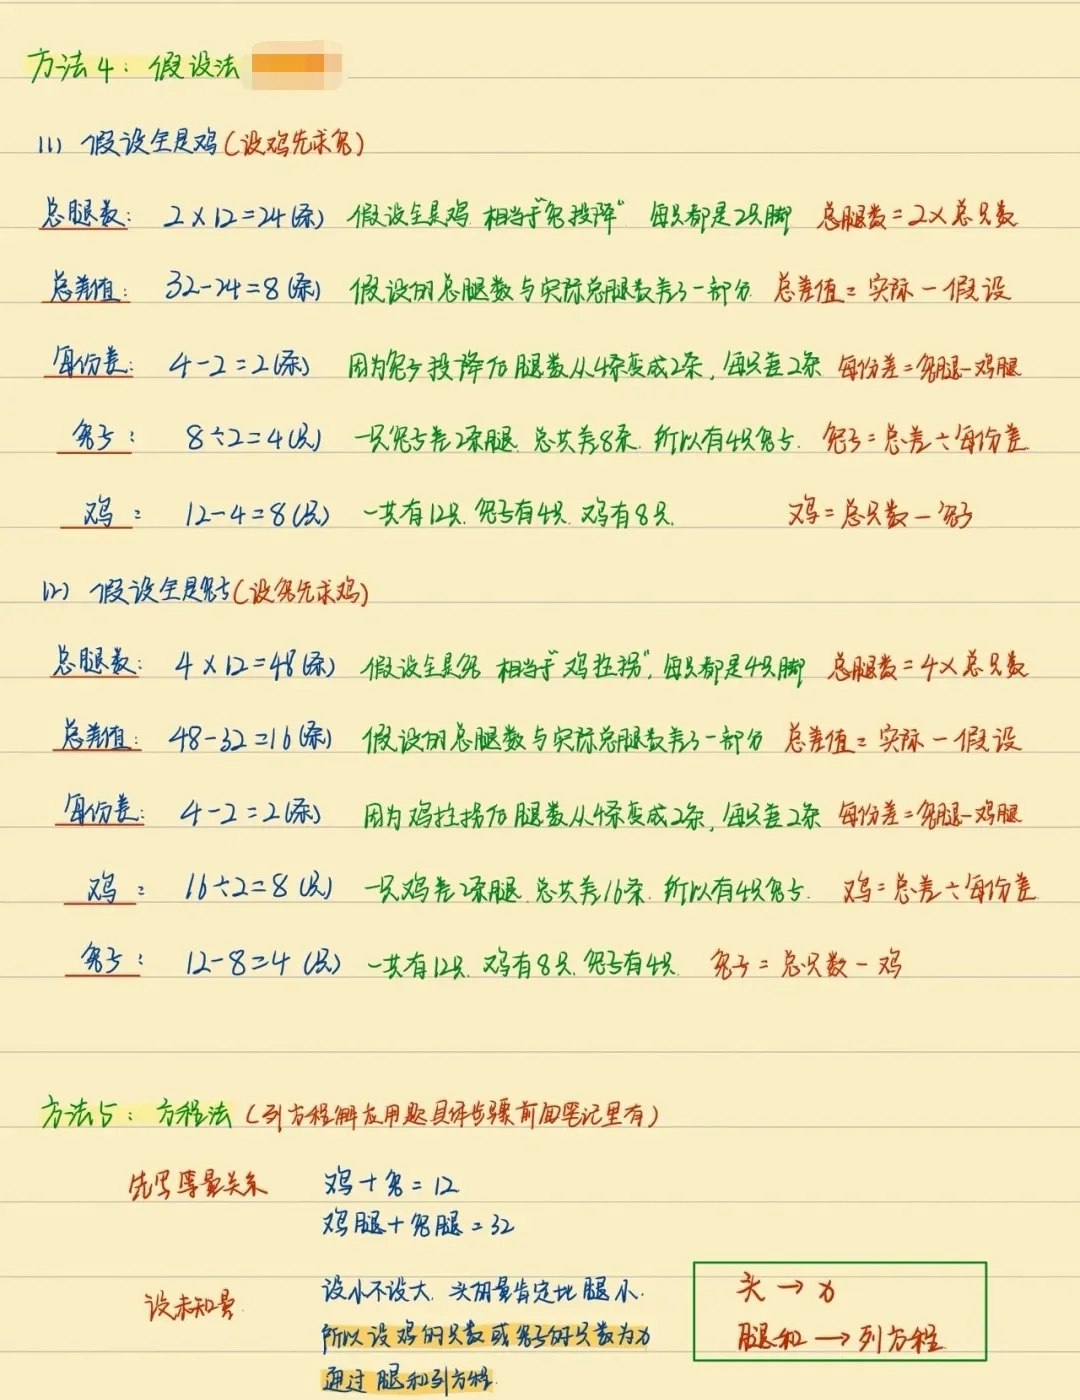 方法4：假设法
(1) 假设全是鸡(设鸡先求兔)
总腿数： 2×12=24(条) 假设全是鸡 相当于"兔投降" 每只都是2只脚 总腿数=2×总只数
总差值： 32-24=8(条) 假设的总腿数与实际总腿数差了一部分 总差值=实际-假设
每份差： 4-2=2(条) 因为兔子投降后腿数从4条变成2条，每只差2条 每份差=兔腿-鸡腿
兔子： 8÷2=4(只) 一只兔子差2条腿.总共差8条.所以有4只兔子. 兔子=总差÷每份差
鸡： 12-4=8(只) 一共有12只.兔子有4只.鸡有8只. 鸡=总只数-兔子
(2) 假设全是兔子(设兔先求鸡)
总腿数： 4×12=48(条) 假设全是兔 相当于"鸡拄拐"，每只都是4只脚 总腿数=4×总只数
总差值： 48-32=16(条) 假设的总腿数与实际总腿数差了一部分 总差值=实际-假设
每份差： 4-2=2(条) 因为鸡拄拐后腿数从4条变成2条，每只差2条 每份差=兔腿-鸡腿
鸡： 16÷2=8(只) 一只鸡差2条腿.总共差16条.所以有4只兔子. 鸡=总差÷每份差
兔子： 12-8=4(只) 一共有12只.鸡有8只.兔子有4只. 兔子=总只数-鸡
方法5：方程法(列方程解应用题具体步骤前面笔记里有)
先写等量关系 鸡+兔=12
鸡腿+兔腿=32
设未知量 设小不设大.头的量肯定比腿小.
头→x
所以设鸡的只数或兔子的只数为x
腿和→列方程
通过腿和列方程.